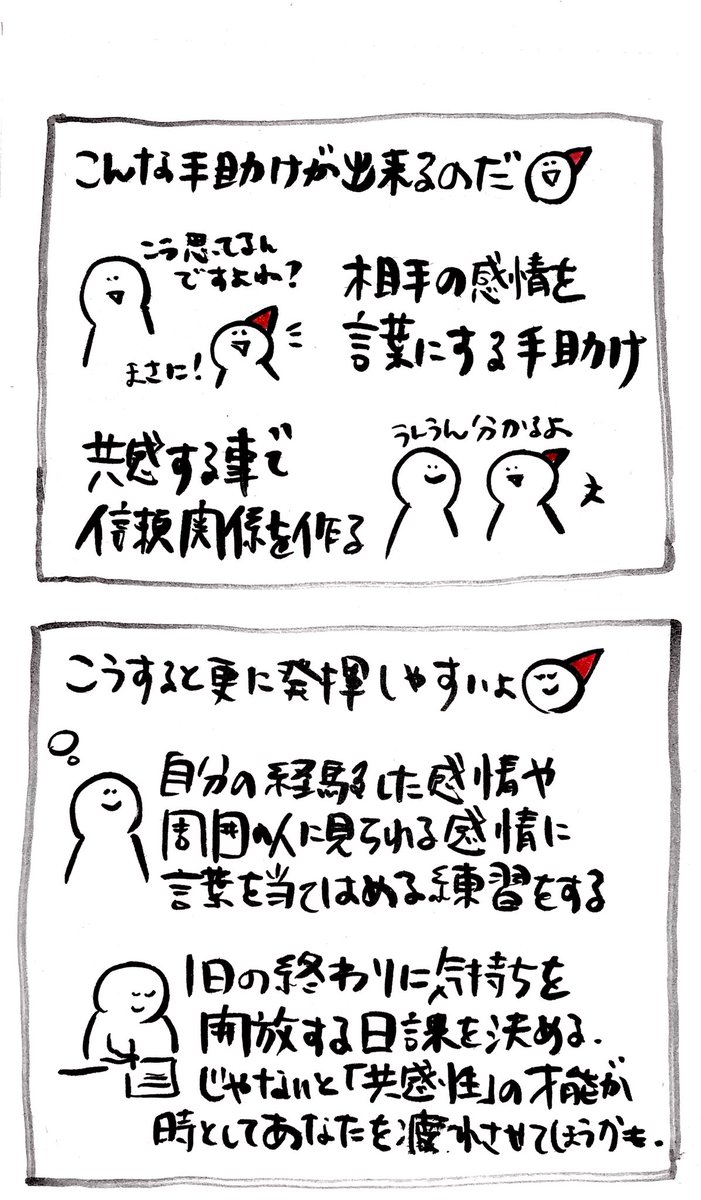 こんな手助けが出来るのだ
こう思ってるん
ですよね?
まさに!
相手の感情を
言葉にする手助け
うんうん分かるよ
共感する事で
信頼関係を作る
こうすると更に発揮しやすいよ
自分の経験した感情や
周囲の人に見られる感情に
言葉を当てはめる練習をする
1日の終わりに気持ちを
開放する日課を決める.
じゃないと「共感性」の才能が
時としてあなたを疲れさせてしまうかも.